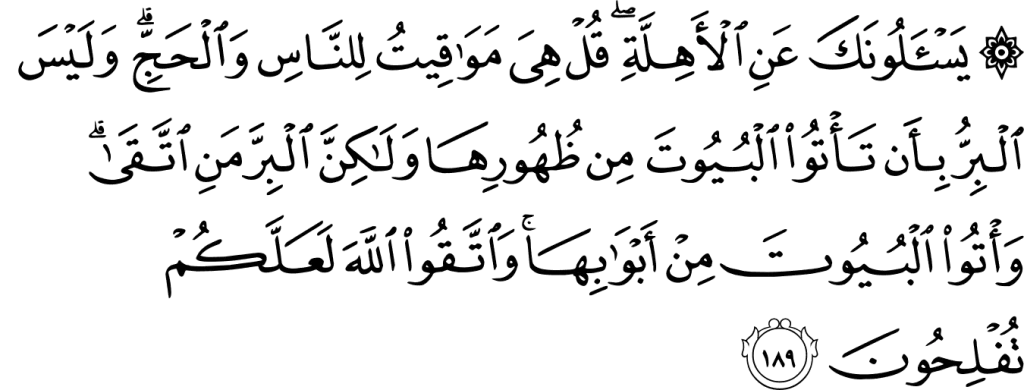 ۞ يَسْـَٔلُونَكَ عَنِ ٱلْأَهِلَّةِ ۖ قُلْ هِىَ مَوَٰقِيتُ لِلنَّاسِ وَٱلْحَجِّ ۗ وَلَيْسَ
ٱلْبِرُّ بِأَن تَأْتُوا۟ ٱلْبُيُوتَ مِن ظُهُورِهَا وَلَـٰكِنَّ ٱلْبِرَّ مَنِ ٱتَّقَىٰ ۗ
وَأْتُوا۟ ٱلْبُيُوتَ مِنْ أَبْوَٰبِهَا ۚ وَٱتَّقُوا۟ ٱللَّهَ لَعَلَّكُمْ
تُفْلِحُونَ ١٨٩